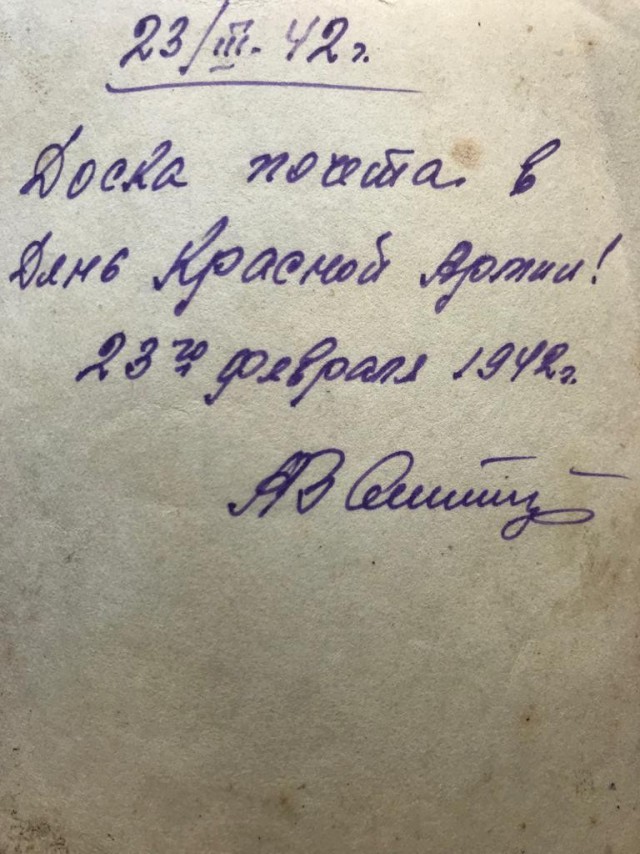 23/III. 42 г.
Доска почета в
День Красной Армии!
23го февраля 1942 г.
АВ